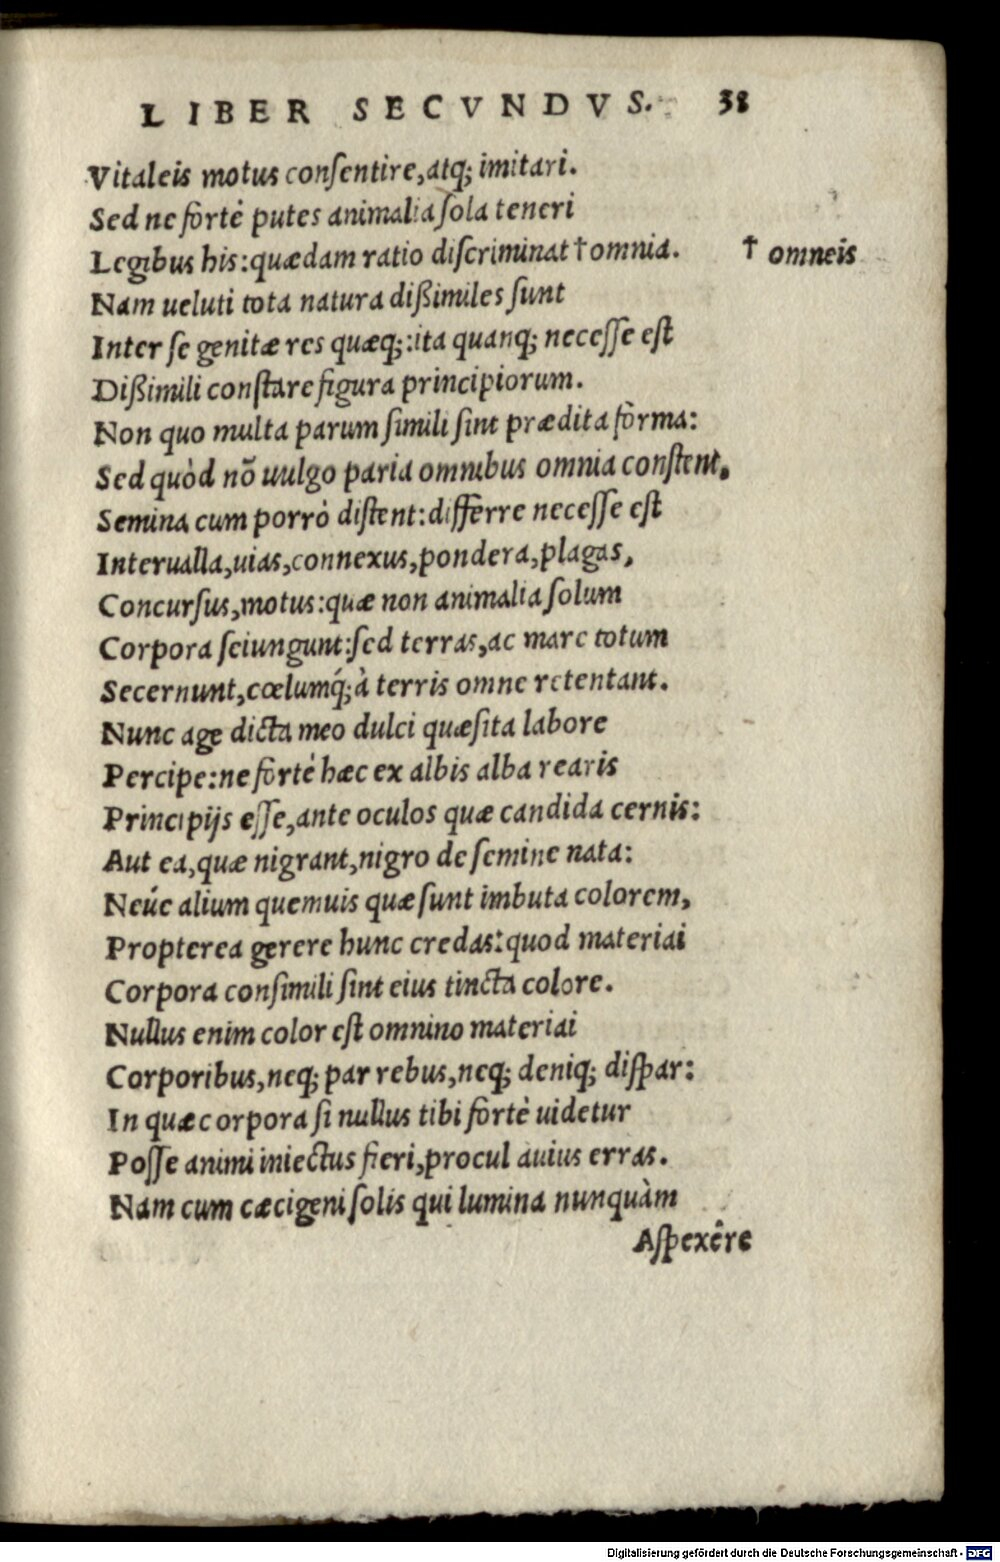 LIBER SECVNDVS. 38
Vitaleis motus conſentire, atq; imitari.
Sed ne fortè putes animalia ſola teneri
Legibus his: quædam ratio diſcriminat † omnia. † omneis
Nam ueluti tota natura dißimiles ſunt
Inter ſe genitæ res quæq;: ita quanq; neceſſe eſt
Dißimili conſtare figura principiorum.
Non quo multa parum ſimili ſint prædita forma:
Sed quòd nõ uulgo paria omnibus omnia conſtent.
Semina cum porrò diſtent: differre neceſſe eſt
Interualla, uias, connexus, pondera, plagas,
Concurſus, motus: quæ non animalia ſolum
Corpora ſeiungunt: ſed terras, ac mare totum
Secernunt, cœlumq́; à terris omne retentant.
Nunc age dicta meo dulci quæſita labore
Percipe: ne fortè hæc ex albis alba rearis
Principijs eſſe, ante oculos quæ candida cernis:
Aut ea, quæ nigrant, nigro de ſemine nata:
Neúe alium quemuis quæ ſunt imbuta colorem,
Propterea gerere hunc credas: quod materiai
Corpora conſimili ſint eius tincta colore.
Nullus enim color eſt omnino materiai
Corporibus, neq; par rebus, neq; deniq; diſpar:
In quæ corpora ſi nullus tibi fortè uidetur
Poſſe animi iniectus fieri, procul auius erras.
Nam cum cæcigeni ſolis qui lumina nunquàm
Aſpexêre
Digitalisierung gefördert durch die Deutsche Forschungsgemeinschaft - DFG